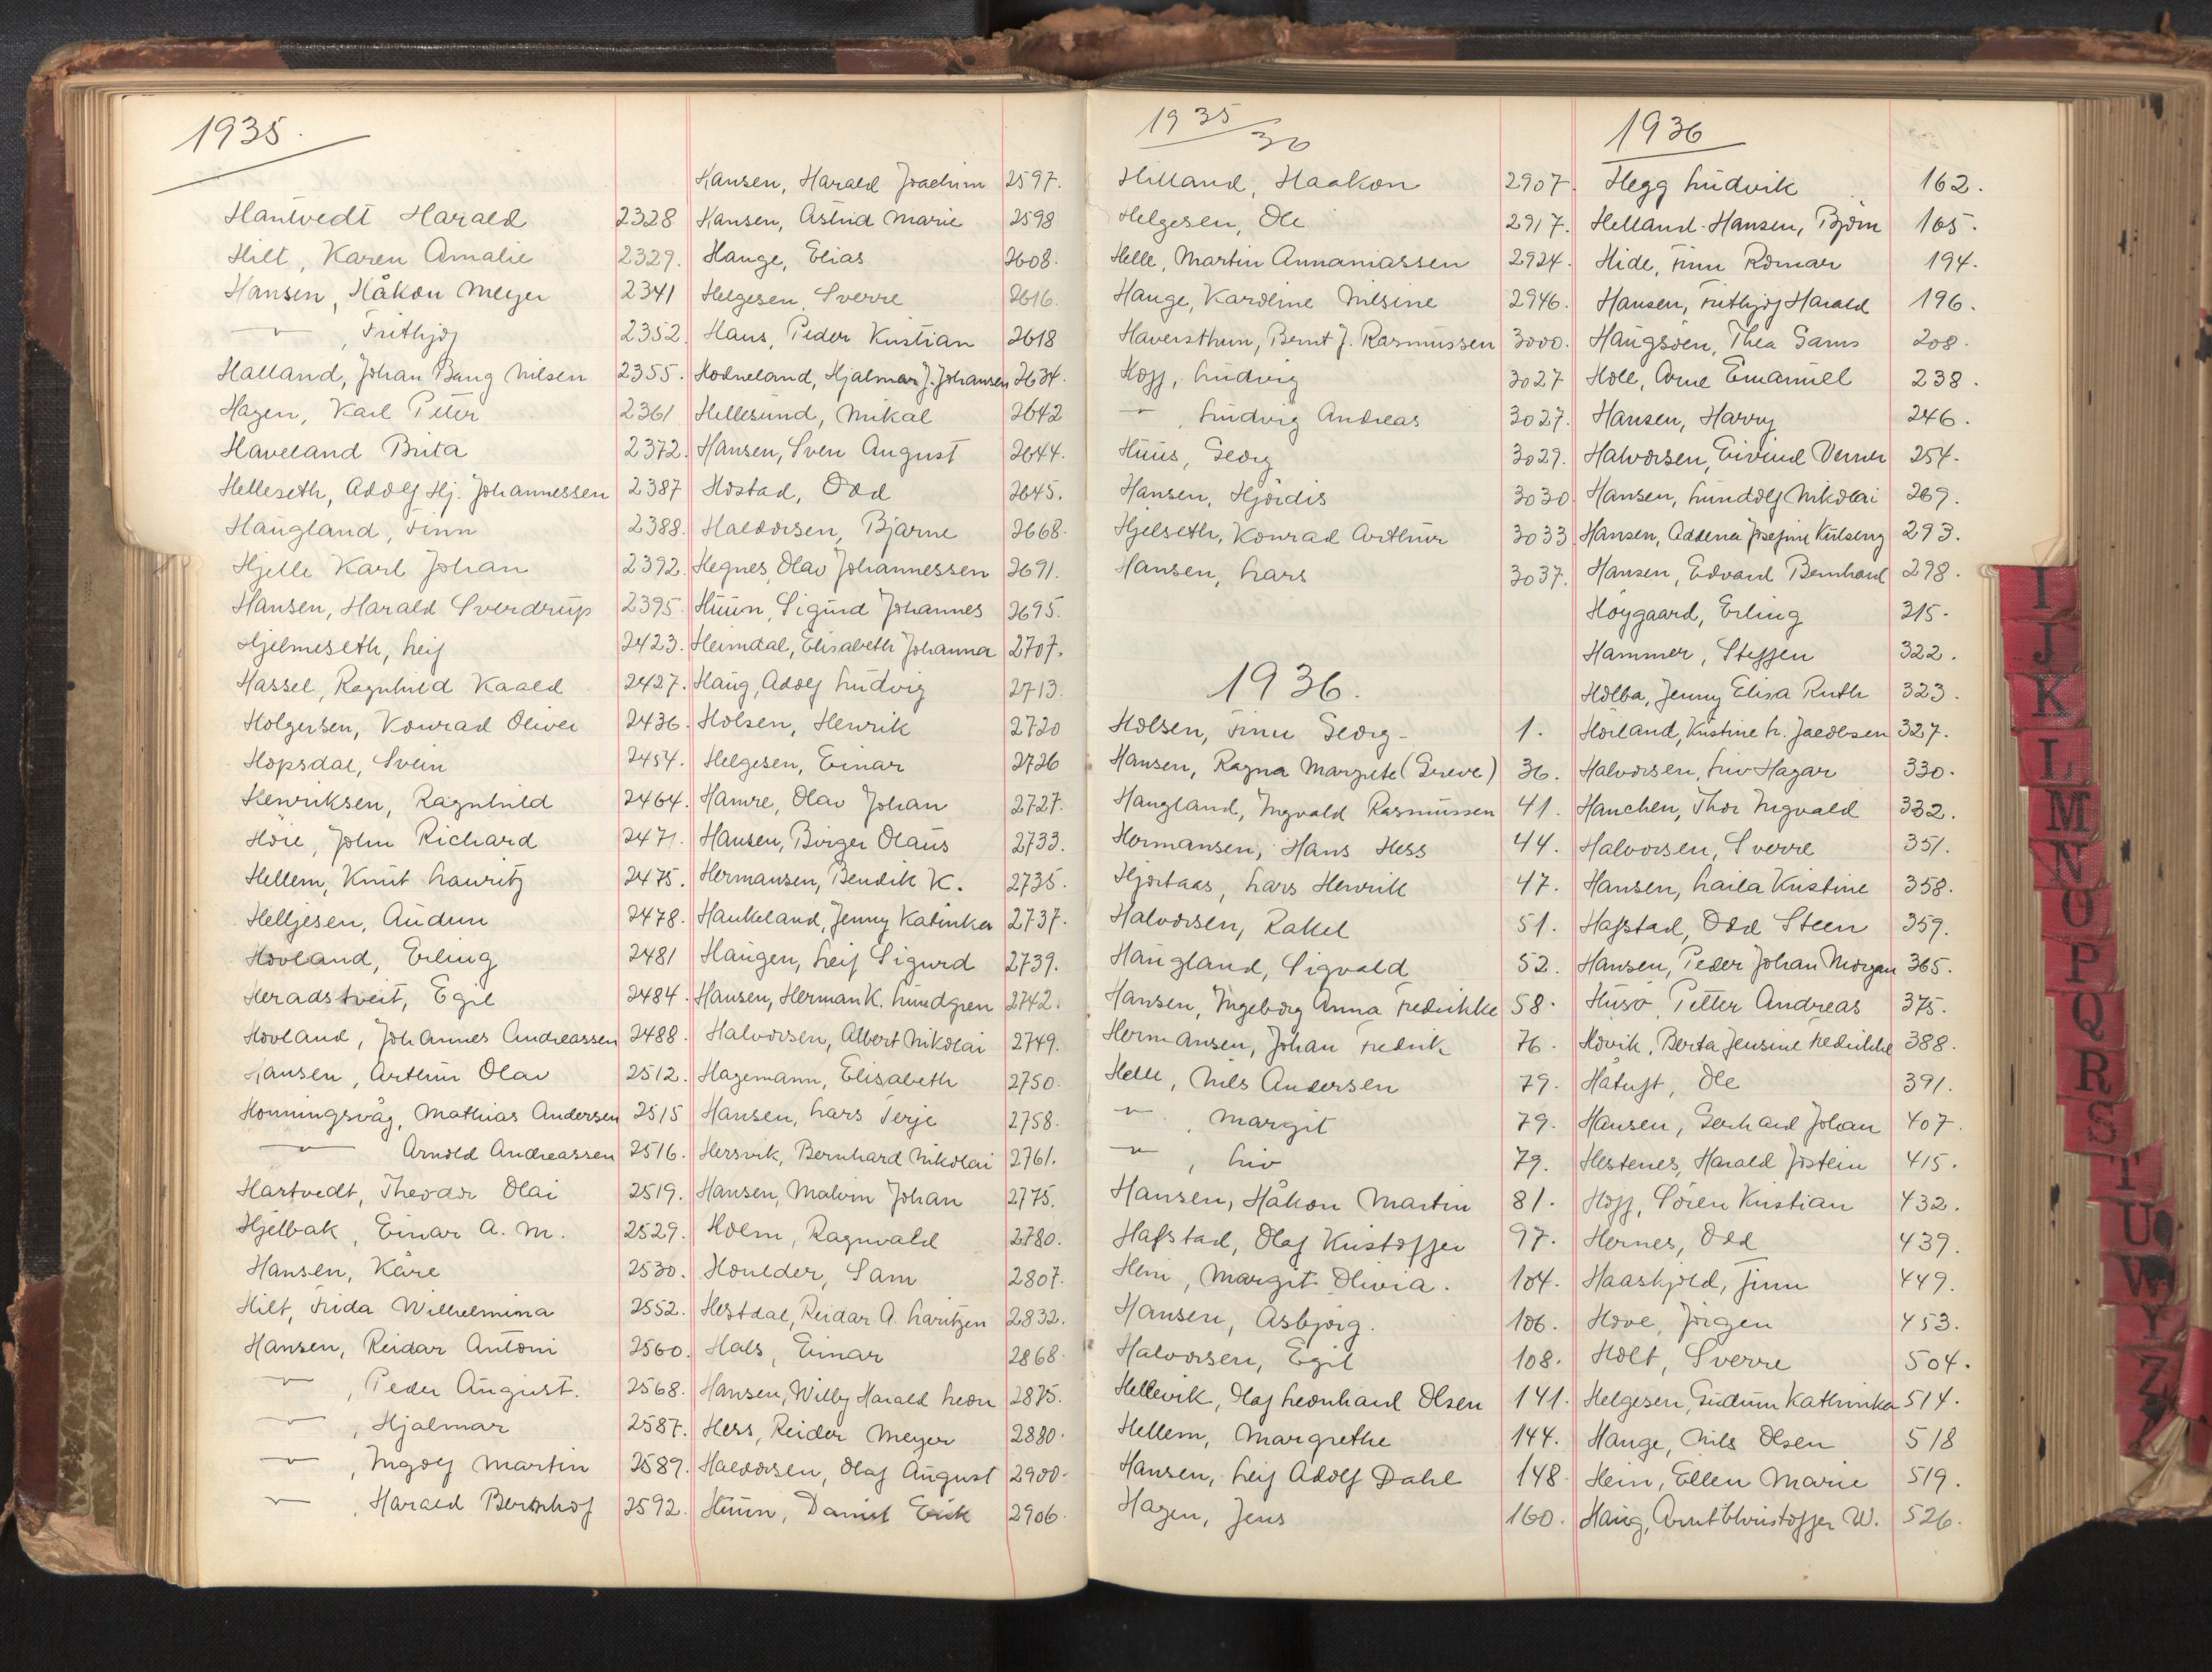 1935.
Hantvedt Harald 2328
Hilt, Karen Amalie 2329.
Hansen, Håkon Meyer 2341
— " — , Frithjof 2352.
Halland, Johan Bang Nilsen 2355.
Hagen, Karl Peter 2361
Haveland Brita 2372.
Helleseth, Adolf Hj. Johannessen 2387
Haugland, Finn 2388.
Hjelle Karl Johan 2392.
Hansen, Harald Sverdrup 2395.
Hjelmeseth, Leif 2423.
Hassel, Ragnhild Kaald 2427.
Holgersen, Konrad Oliver 2436.
Hopsdal, Svein 2454.
Henriksen, Ragnhild 2464.
Höie, John Richard 2471.
Hellem, Knut Lauritz 2475.
Helljesen, Audun 2478.
Hovland, Erling 2481
Heradstveit, Egil 2484.
Hovland, Johannes Andreassen 2488.
Hansen, Arthur Olav 2512.
Honningsvåg, Mathias Andersen 2515
— " — Arnold Andreassen 2516.
Hartvedt, Theodor Olai 2519.
Hjelbak, Einar A. M. 2529.
Hansen, Kåre 2530.
Hilt, Frida Wilhelmina 2552.
Hansen, Reidar Antoni 2560.
— " — , Peder August. 2568.
— " — , Hjalmar 2587.
— " — , Ingolf Martin 2589.
— " — , Harald Bernhof 2592.
Hansen, Harald Joachim 2597.
Hansen, Astrid Marie 2598
Hauge, Elias 2608.
Helgesen, Sverre 2616.
Haus, Peder Kristian 2618
Hodneland, Hjalmar J. Johansen 2634.
Hellesund, Mikal 2642
Hansen, Sven August 2644.
Hostad, Odd 2645.
Haldorsen, Bjarne 2668.
Hegnes, Olav Johannessen 2691.
Huun, Sigurd Johannes 2695.
Heimdal, Elisabeth Johanna 2707.
Haug, Adolf Ludvig 2713.
Holsen, Henrik 2720
Helgesen, Einar 2726
Hamre, Olav Johan 2727.
Hansen, Birger Olaus 2733.
Hermansen, Bendik K. 2735.
Haukeland, Jenny Katinka 2737.
Haugen, Leif Sigurd 2739.
Hansen, Herman K. Lundgren 2742.
Halvorsen, Albert Nikolai 2749.
Hagemann, Elisabeth 2750.
Hansen, Lars Terje 2758.
Hersvik, Bernhard Nikolai 2761.
Hansen, Malvin Johan 2775.
Holm, Ragnvald 2780.
Houlder, Sam 2807.
Hestdal, Reidar A. Laritzen 2832.
Hals, Einar 2868.
Hansen, Willy Harald Leon 2875.
Hess, Reidar Meyer 2880.
Haldorsen, Olaf August 2900.
Huun, Daniel Erik 2906.
1935
36
Hilland, Haakon 2907.
Helgesen, Ole 2917.
Helle, Martin Annaniassen 2924.
Hauge, Karoline Nilsine 2946.
Haversthun, Bernt J. Rasmussen 3000.
Hoff, Ludvig 3027
— " — , Ludvig Andreas 3027.
Huus, Georg 3029.
Hansen, Hjördis 3030.
Hjelseth, Konrad Arthur 3033.
Hansen, Lars 3037.
1936.
Holsen, Finn Georg 1.
Hansen, Ragna Margrete (Greve) 36.
Haugland, Ingvald Rasmussen 41.
Hermansen, Hans Hess 44.
Hjortaas, Lars Henrik 47.
Halvorsen, Rakel 51.
Haugland, Sigvald 52.
Hansen, Ingeborg Anna Fredrikke 58.
Hermansen, Johan Fredrik 76.
Helle, Nils Andersen 79.
— " — , Margit 79.
— " — , Liv 79.
Hansen, Håkon Martin 81.
Hafstad, Olaf Kristoffer 97.
Hein, Margit Olivia. 104.
Hansen, Asbjørg. 106.
Halvorsen, Egil 108.
Hellevik, Olaf Leonhard Olsen 141.
Hellem, Margrethe 144.
Hansen, Leif Adolf Dahl 148
Hagen, Jens 160.
1936
Hegg Ludvik 162.
Helland-Hansen, Björn 165.
Hide, Finn Romar 194.
Hansen, Frithjof Harald 196.
Haugsöen, Thea Sams 208.
Holl, Arne Emanuel 238.
Hansen, Harry 246.
Halvorsen, Eivind Verner 254.
Hansen, Lundolf Nikolai 269.
Hansen, Addena Josefine 293.
Hansen, Edvard Bernhard 298.
Höygaard, Erling 315.
Hammer, Steffen 322.
Holba, Jenny Elisa Ruth 323.
Hörland, Kristine L. Jacobsen 327.
Halvorsen, Liv Hagar 330.
Hanchen, Thor Ingvald 332.
Halvorsen, Sverre 351.
Hansen, Laila Kristine 358.
Hafstad, Odd Steen 359.
Hansen, Peder Johan Morgan 365.
Husö, Petter Andreas 375.
Hovik, Berta Jensine Fredrikke 388.
Håtuft, Ole 391.
Hansen, Gerhard Johan 407.
Hestenes, Harald Jostein 415.
Hoff, Sören Kristian 432.
Hernes, Odd 439.
Haaskjold, Finn 449.
Hove, Jörgen 453.
Holt, Sverre 504.
Helgesen, Gudrun Kathrinka 514.
Hauge, Nils Olsen 518
Hein, Ellen Marie 519.
Haug, Arnt Christoffer W. 526.
I
J
K
L
M
N
O
P
Q
R
S
T
U
W
Y
Z